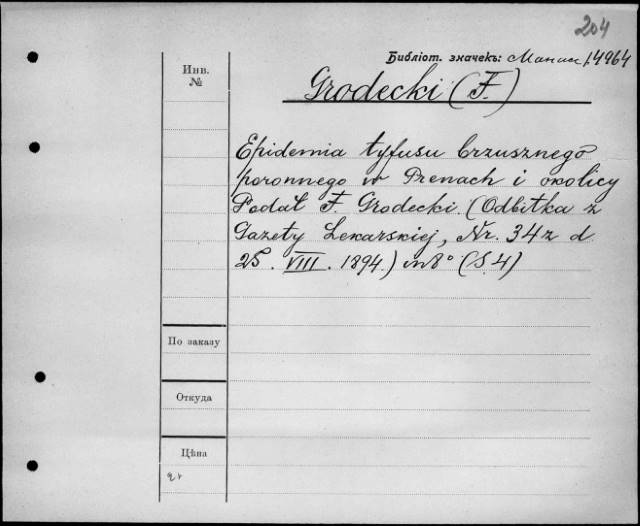 204
Библіот. значекъ: 14964
Инв.
№
Grodecki (F.)
Epidemia tyfusu brzusznego
poronnego w Prenach i okolicy
Podał F. Grodecki. (Odbitka z
Gazety Lekarskiej, Nr. 34 z d
25. VIII. 1894.) in 8° (S. 4)
По заказу
Откуда
Цѣна